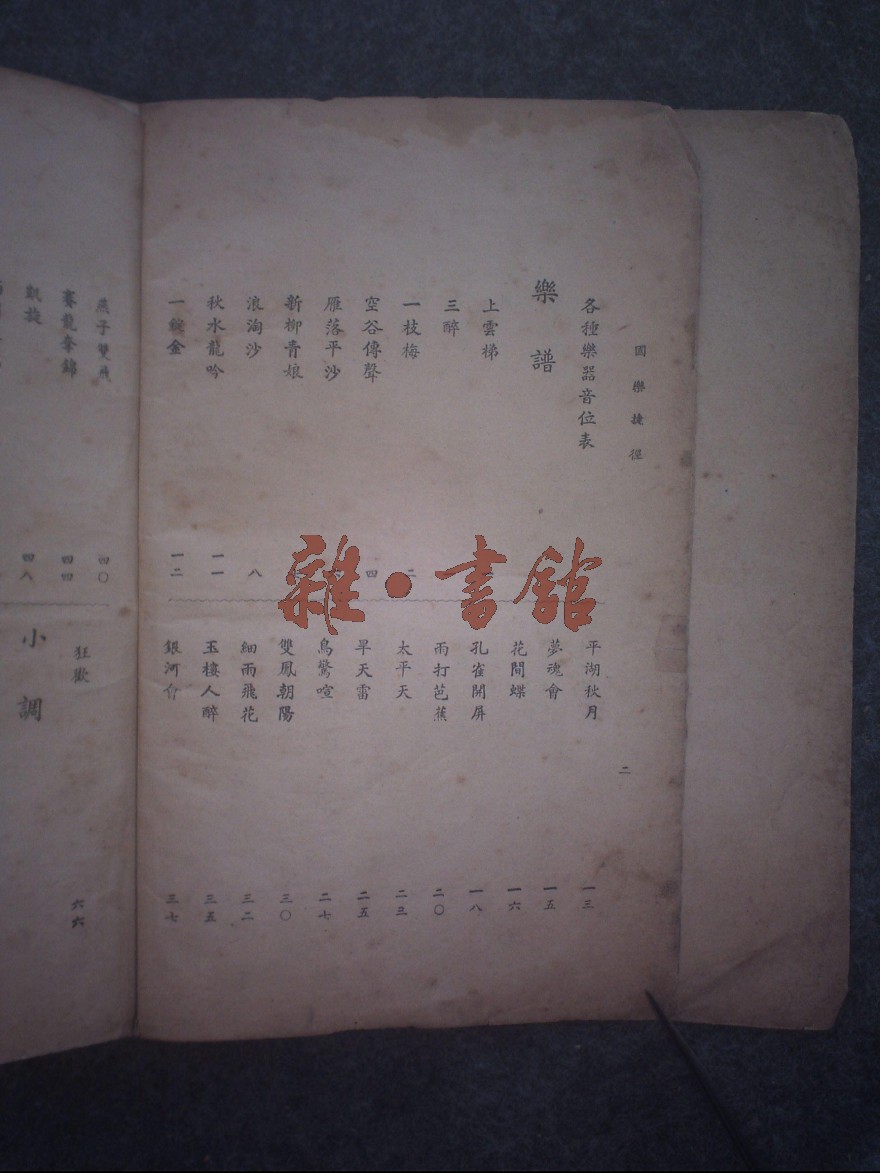 國樂捷徑
二
各種樂器音位表
樂譜
上雲梯
三醉
一枝梅 二
空谷傳聲 四
雁落平沙
新柳青娘
浪淘沙 八
秋水龍吟 一一
一錠金 一二
平湖秋月 一三
夢魂會 一五
花間蝶 一六
孔雀開屏 一八
雨打芭蕉 二〇
太平天 二三
旱天雷 二五
鳥驚喧 二七
雙鳳朝陽 三〇
細雨飛花 三二
玉樓人醉 三五
銀河會 三七
燕子雙飛 四〇
賽龍奪錦 四四
凱旋 四八
狂歡 六六
小調
雜·書館